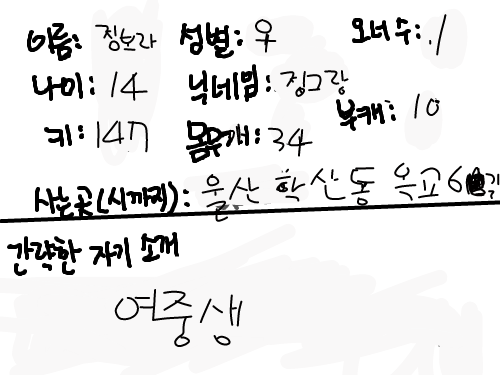 이름: 징보라 성별: 우 오너 수: 1
나이: 14 닉네임: 징그랑
부캐: 10
키: 147 몸무개: 34
사는곳(시까지): 울산 학산동 옥교6길
간략한 자기 소개
여중생